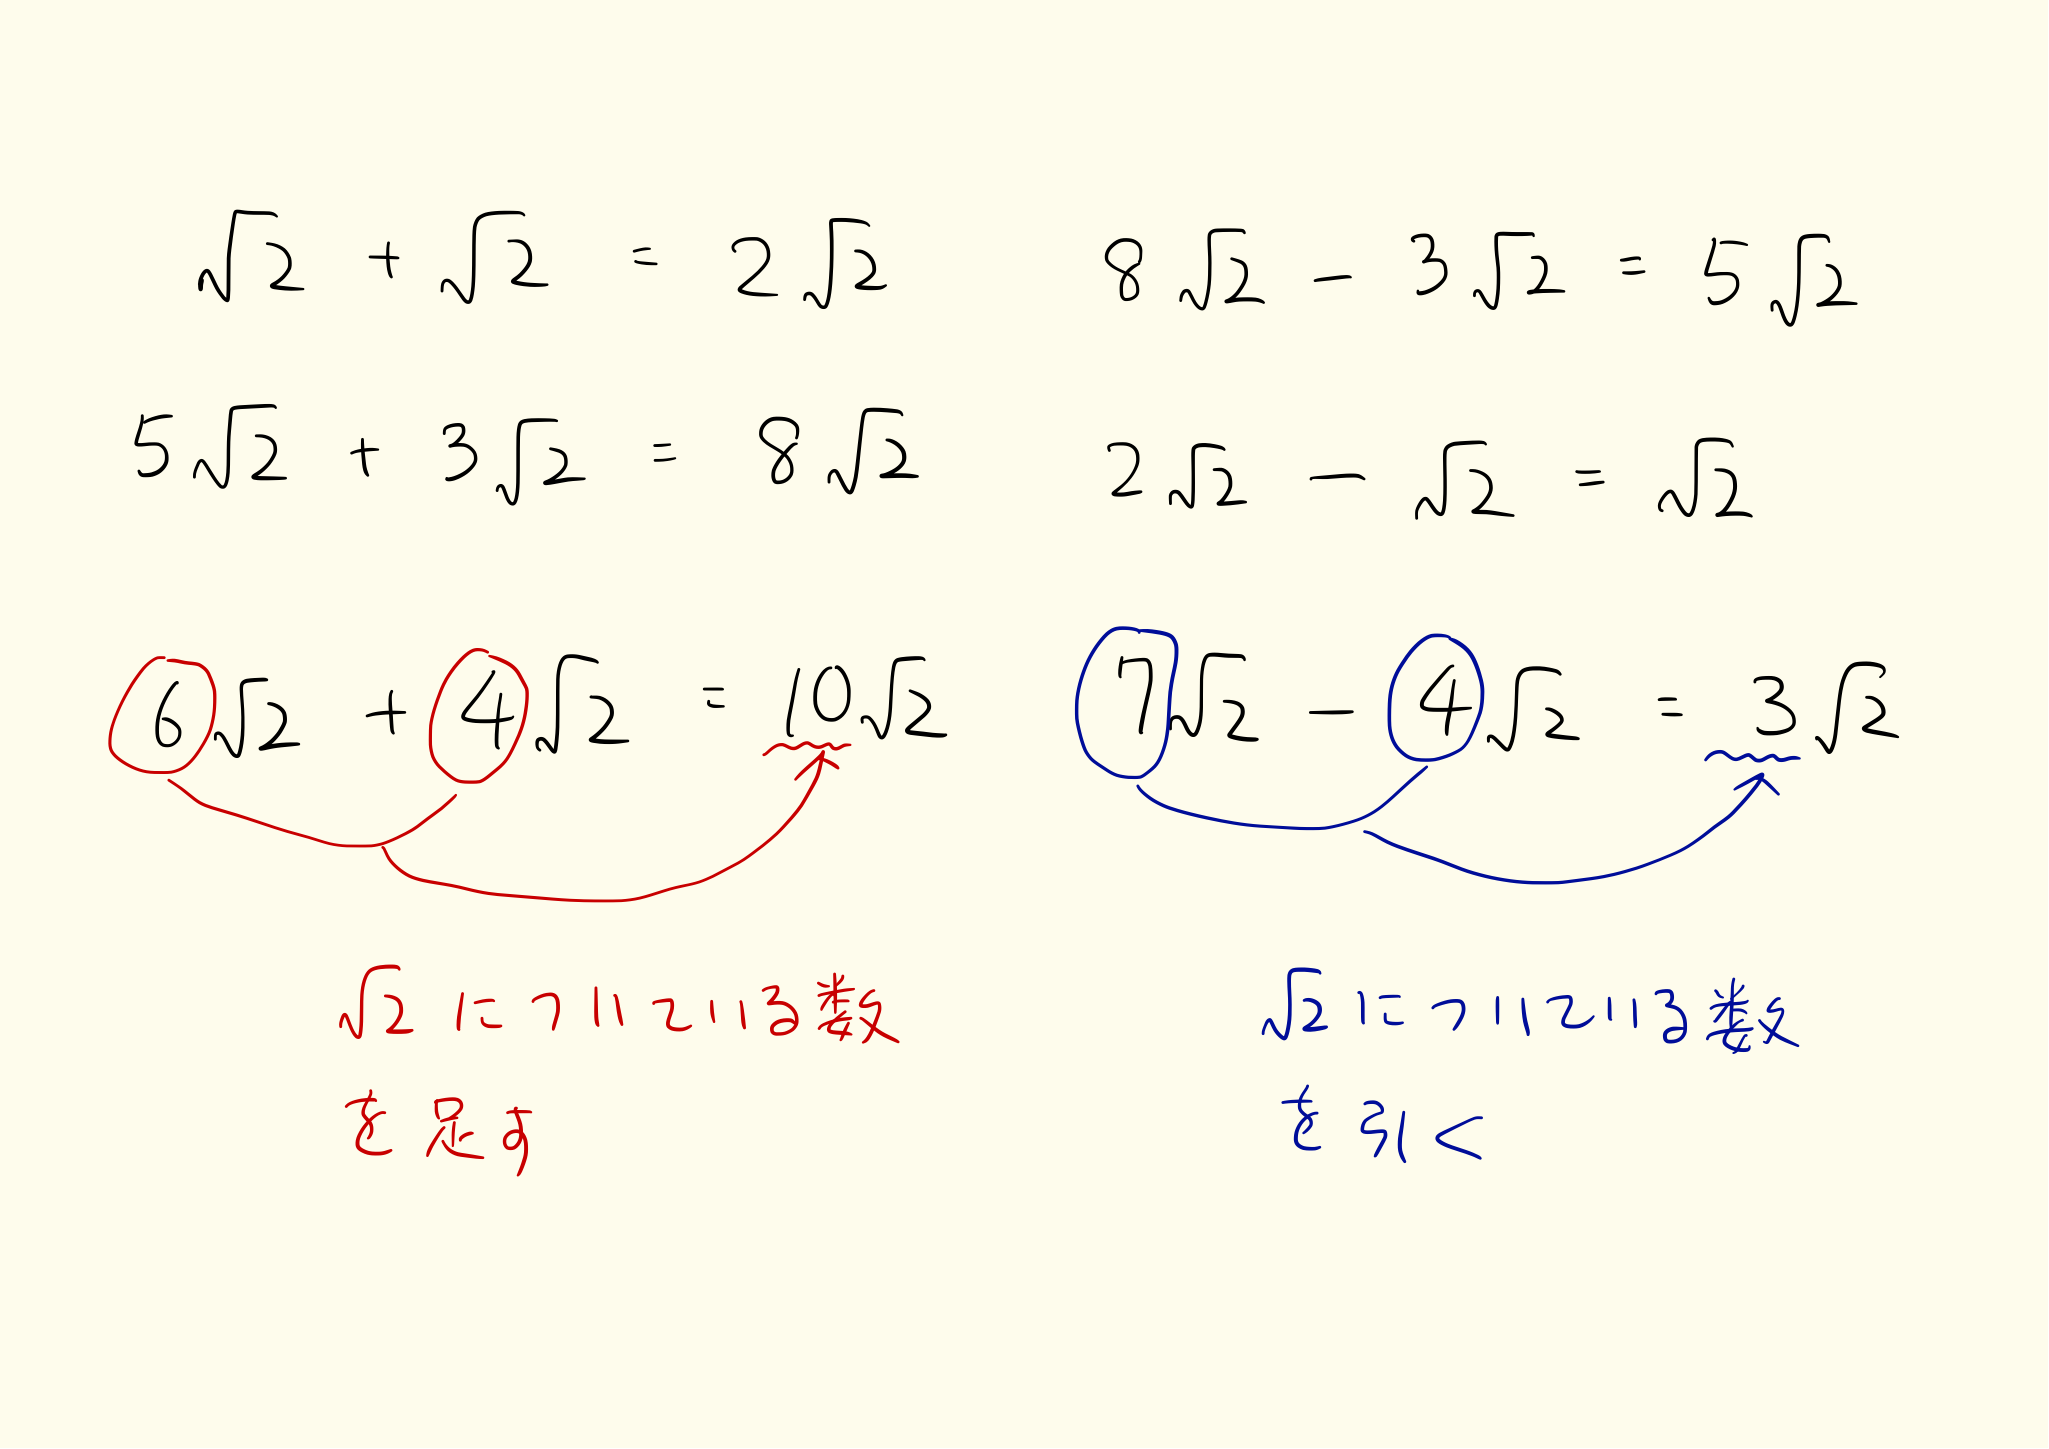 √2 + √2 = 2√2
5√2 + 3√2 = 8√2
6√2 + 4√2 = 10√2
√2についている数
を足す
8√2 - 3√2 = 5√2
2√2 - √2 = √2
7√2 - 4√2 = 3√2
√2についている数
を引く